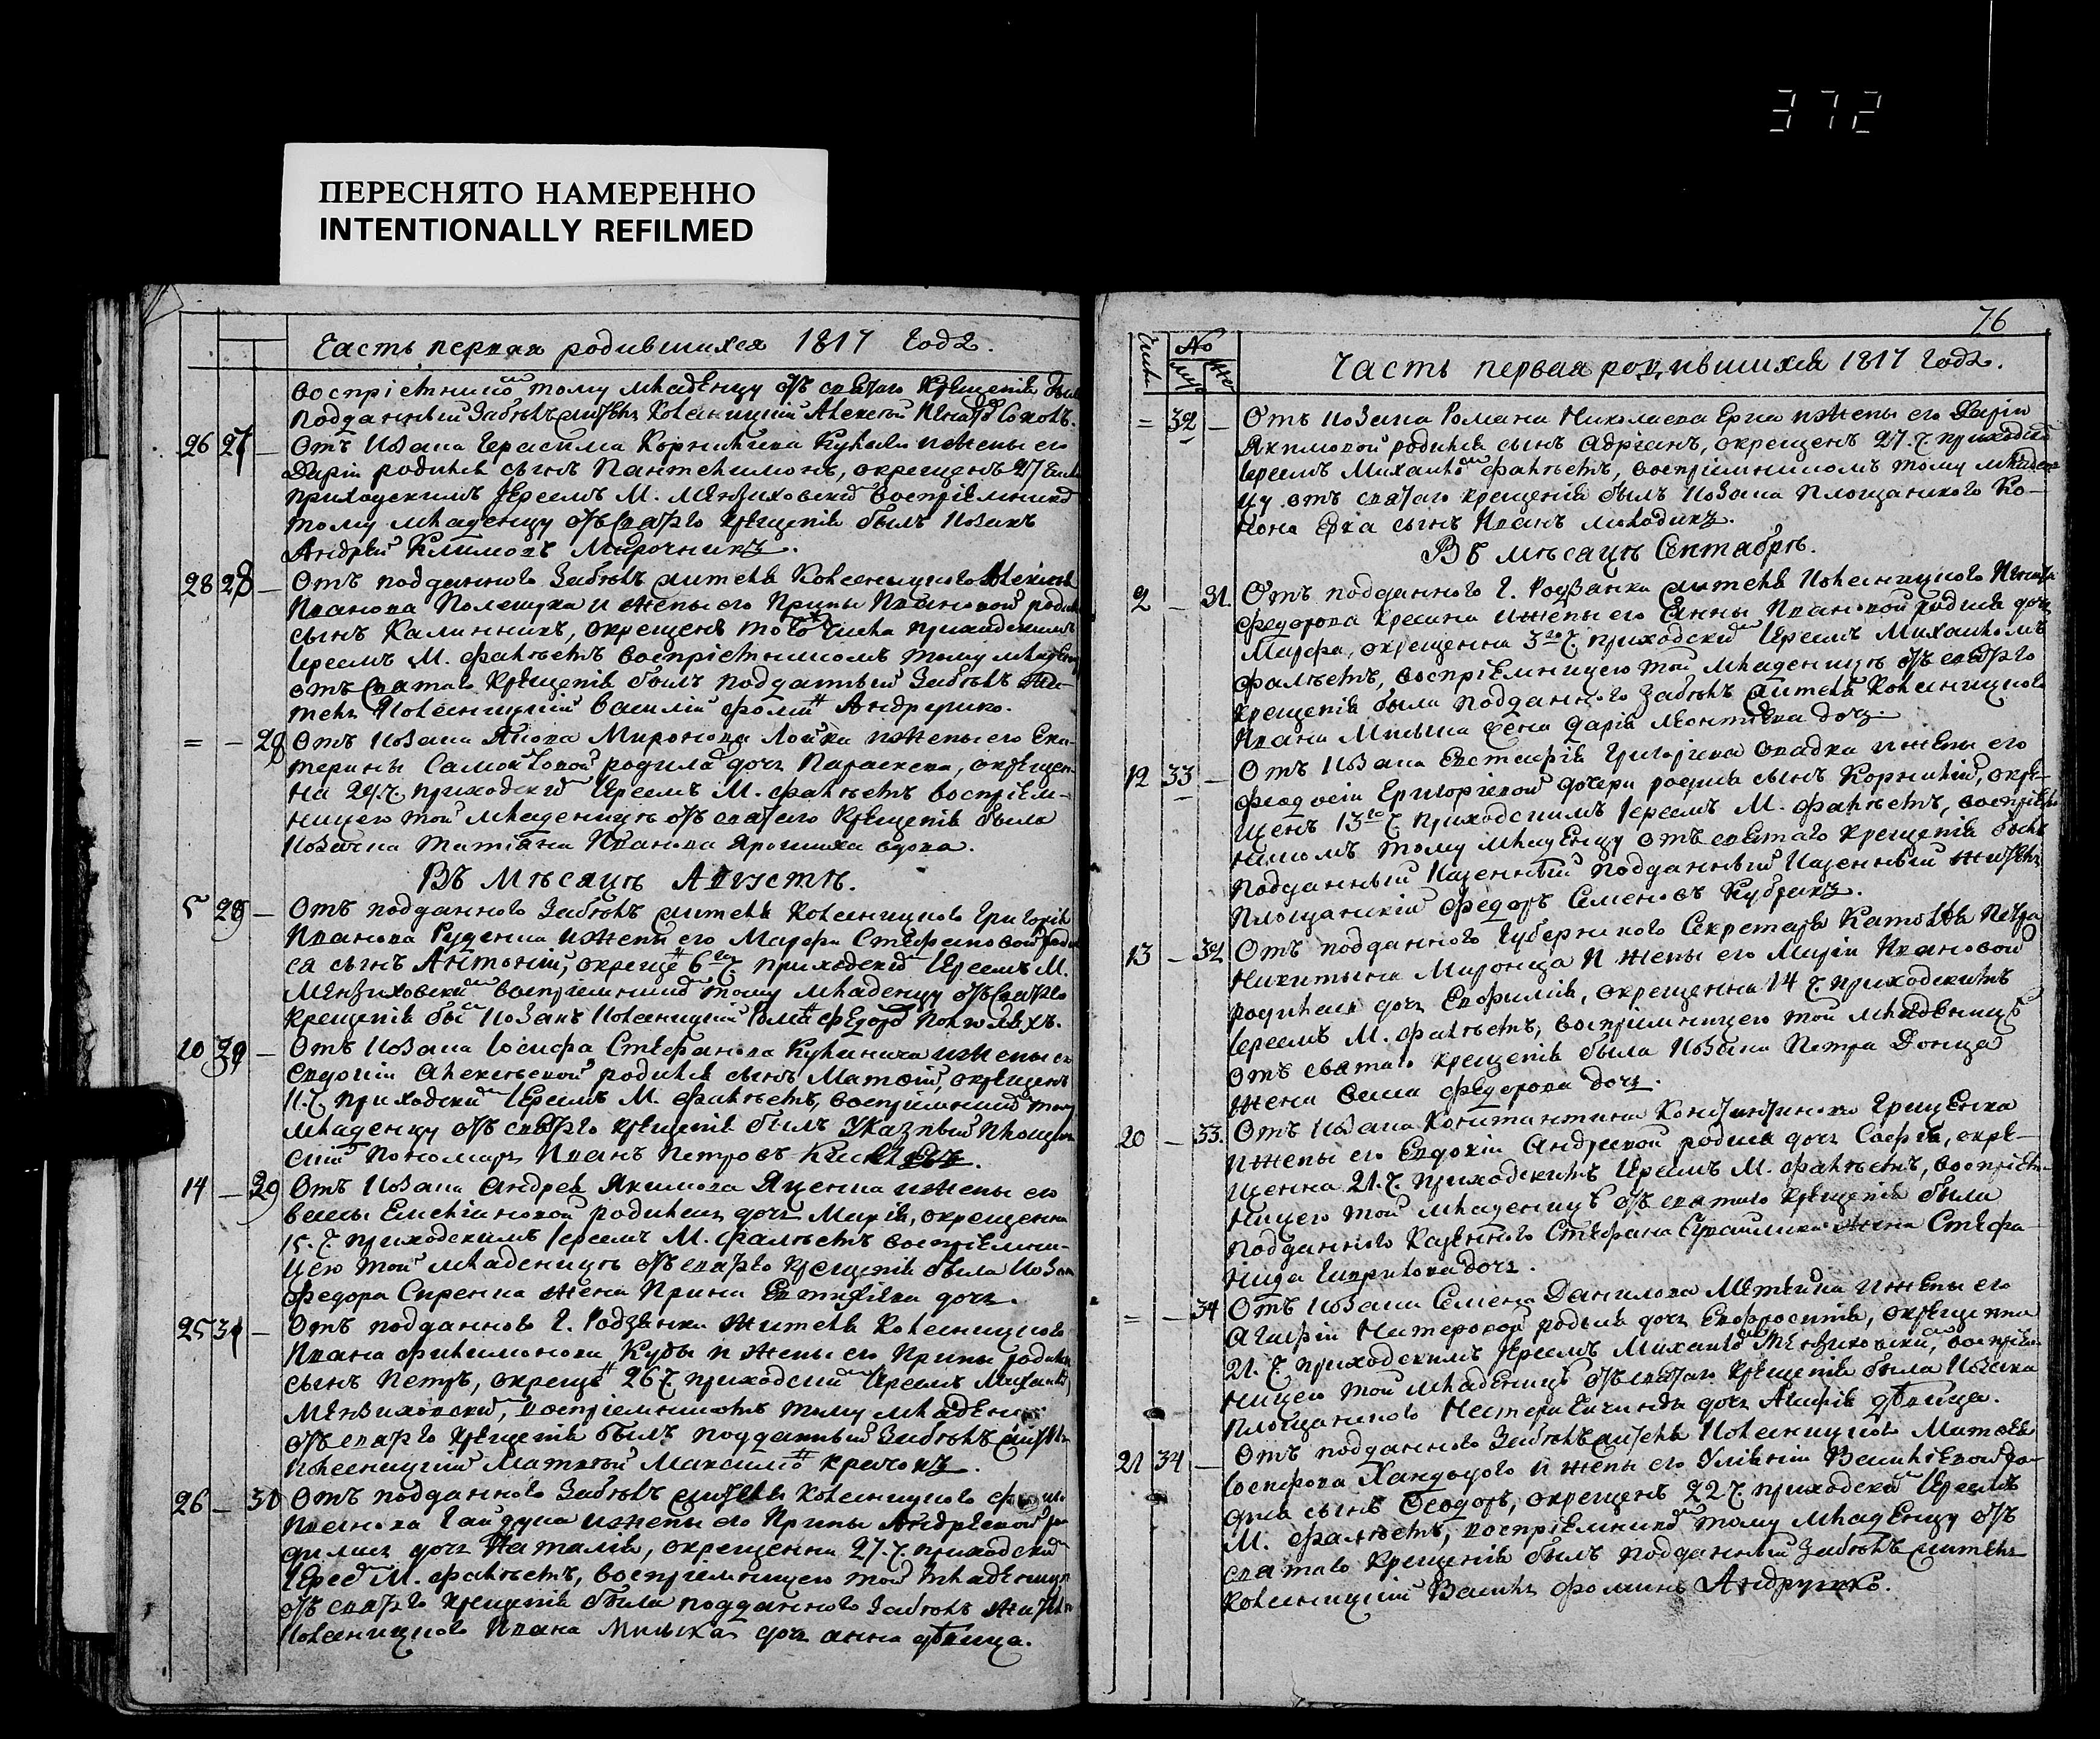 372
ПЕРЕСНЯТО НАМЕРЕННО
INTENTIONALLY REFILMED
Часть первая родившихся 1817 Года.
воспріемником тому младенцу отъ святаго крещенія былъ
подданный Забѣлъ житель Колесницкій Алексей
26 27 — Отъ козака Герасима Корнилиева и жены его
Дарии родился сынъ Пантелимонъ, окрещенъ 27 числа
приходскимъ Іереемъ М. Мензиховским воспріемником
тому младенцу отъ святаго крещенія былъ козакъ
Андрей Климовъ Мирочникъ.
28 28 — Отъ подданного Забѣлъ жителя Колесницкого Алексия
Иванова Полещука и жены его Ирины Ивановой родился
сынъ Калинникъ, окрещенъ того числа приходскимъ
Іереемъ М. Фальетъ воспріемникомъ тому младенцу
отъ святаго крещенія былъ подданный Забѣлъ жи-
тель Колесницкій Василій Фомин Андрушко.
= — 28 Отъ козака Якова Миронова и жены его Ека-
терины Самойловой родилась дочь Параскева, окрещен-
на 29. ч. приходским Іереемъ М. Фальетъ воспріем-
ницею той младеницѣ отъ святаго крещенія была
козачка Татіана Иванова Ярошиха вдова.
Въ мѣсяцѣ Августѣ.
5 28 — Отъ подданного Забѣлъ жителя Колесницкого Григорія
Иванова Руденка и жены его Марфы Стефановой родил-
ся сынъ Антоній, окрещен 6го ч. приходским Іереемъ М.
Мензиховским воспріемником тому младенцу отъ святаго
крещенія был козакъ Колесницкій
10 — Отъ козака Іосифа Стефанова и жены его
Евдокіи Алексѣевой родился сынъ Матфій, окрещенъ
11. ч. приходским Іереемъ М. Фальетъ, воспріемником тому
младенцу отъ святаго крещенія былъ указный Площан-
скій пономарь Иванъ Петровъ
14 — 29 Отъ козака Андрея Якимова Яценка и жены его
Емеліановой родилась дочь Марія, окрещенна
15. ч. приходскимъ Іереемъ М. Фальетъ воспріемни-
цею той младеницѣ отъ святаго крещенія была козака
Федора Сиренка жена Ирина Евтихіева дочь.
25 31 — Отъ подданного Г. Родзянки жителя Колесницкого
Ивана Филимонова Кубы и жены его Ирины родился
сынъ Петръ, окрещен 26 ч. приходским Іереемъ Михаиломъ
Мензиховским, воспріемникомъ тому младенцу
отъ святаго крещенія былъ подданный Забѣлъ житель
Колесницкій Матвей Максимов Крачокъ.
26 — 30 Отъ подданного Забѣлъ жителя Колесницкого
Иванова Гайдука и жены его Ирины Андреевой ро-
дилась дочь Наталія, окрещенна 27. ч. приходским
Іереем М. Фальетъ, воспріемницею той младеницѣ
отъ святаго крещенія была подданного Забѣлъ жителя
Колесницкого Ивана Милька дочь Анна дѣвица.
76
Число № муж жен
Часть первая родившихся 1817 года.
= 32 — Отъ козака Романа Николаева Ерка и жены его Даріи
Якимовой родился сынъ Адріанъ, окрещенъ 27. ч. приходским
Іереемъ Михаилом Фальетъ, воспріемникомъ тому младен-
цу отъ святаго крещенія былъ козака Площанского Ко-
нона Ерка сынъ Иванъ молодикъ.
Въ мѣсяцѣ Септабрѣ.
2 — 31. Отъ подданного Г. Родзянки жителя Колесницкого Игната
Федорова и жены его Анны Ивановой родилась дочь
Марфа, окрещенна 3го ч. приходским Іереемъ Михаиломъ
Фальетъ, воспріемницею той младеницѣ отъ святаго
крещенія была подданного Забѣлъ жителя Колесницкого
Ивана Милька жена Дарія Леонтіева дочь.
12 33 — Отъ козака Евстафія Григоріева Сладка и жены его
Феодосіи Григоріевой дочери родился сынъ Корнилій, окре-
щенъ 13го ч. приходскимъ Іереемъ М. Фальетъ, воспріем-
никомъ тому младенцу отъ святаго крещенія былъ
подданный казенный житель
Площанскій Федоръ Семеновъ Кубракъ.
13 — 32 Отъ подданного Губернского Секретаря Петра
Никитина Миронца и жены его Маріи Ивановой
родилась дочь Евфимія, окрещенна 14 ч. приходскимъ
Іереемъ М. Фальетъ, воспріемницею той младеницѣ
отъ святаго крещенія была козака Петра Донца
жена Федорова дочь.
20 — 33. Отъ козака Константина Константинова Грищенка
и жены его Евдокіи Андреевой родилась дочь Софія, окре-
щенна 21. ч. приходскимъ Іереемъ М. Фальетъ, воспріем-
ницею той младеницѣ отъ святаго крещенія была
подданного казенного Стефана жена Стефа-
нида Гаврилова дочь.
= — 34 Отъ козака Семена Данилова и жены его
Агафіи Нестеровой родилась дочь Евфросинія, окрещенна
21. ч. приходскимъ Іереемъ Михаилом Мензиховским, воспріем-
ницею той младеницѣ отъ святаго крещенія была козака
Площанского Нестера дочь Агафія дѣвица.
21 34 — Отъ подданного Забѣлъ жителя Колесницкого Матвея
Іосифова и жены его Уліяніи Василіевой ро-
дился сынъ Феодоръ, окрещенъ 22 ч. приходским Іереемъ
М. Фальетъ, воспріемником тому младенцу отъ
святаго крещенія былъ подданный Забѣлъ житель
Колесницкій Василь Фоминъ Андрушко.